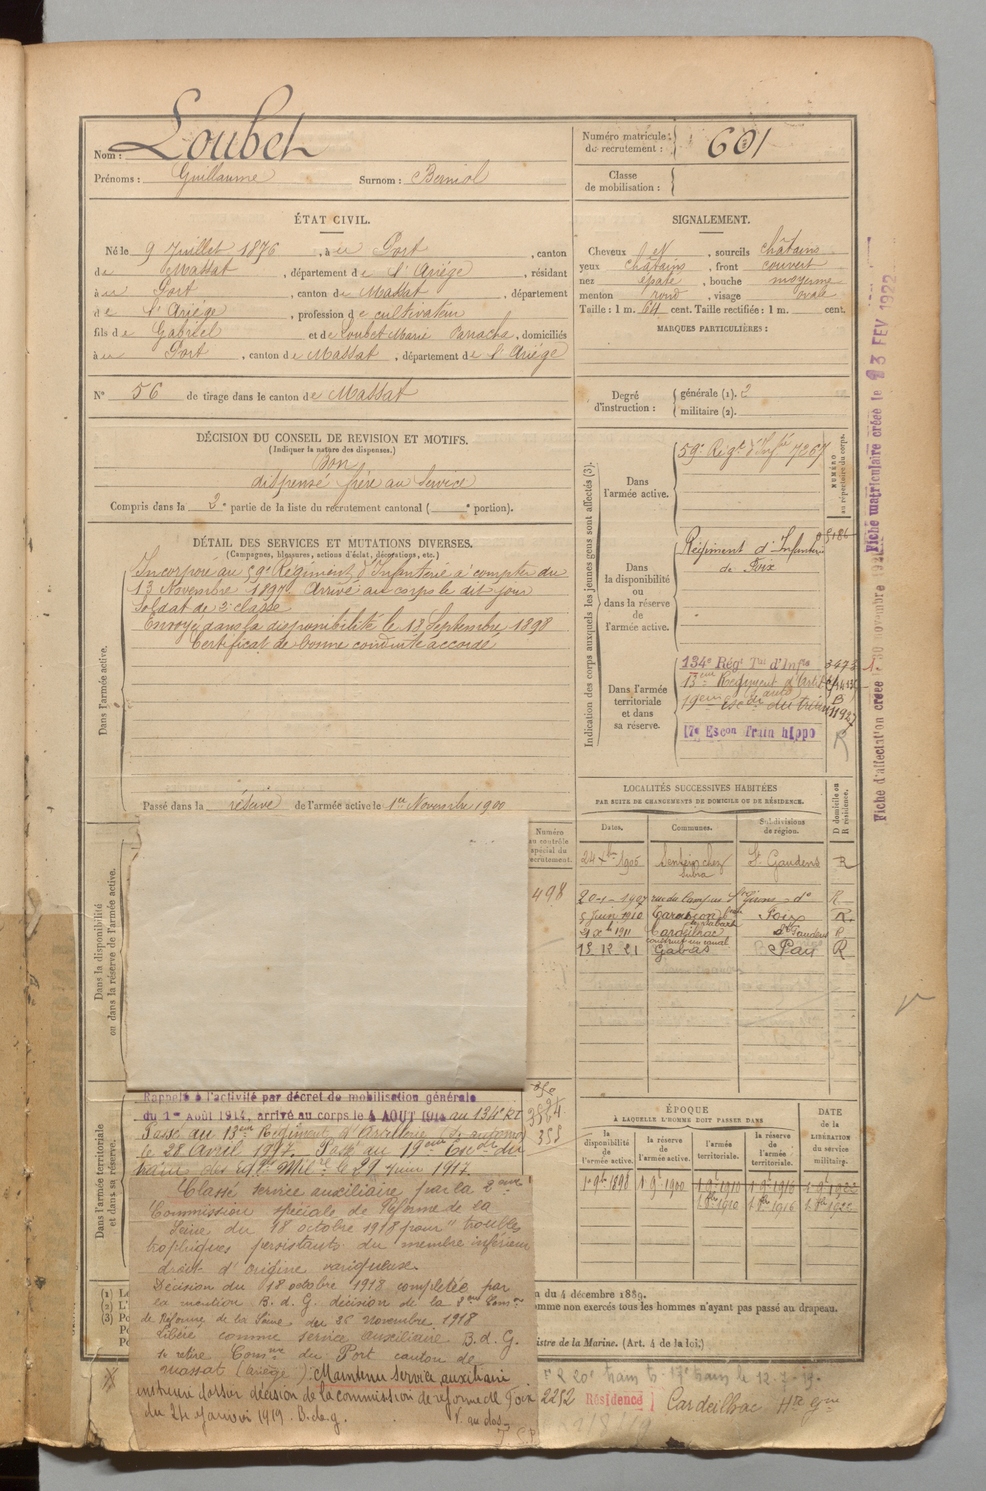 Nom : Loubet
Prénoms : Guillaume Surnom : Berniol
Numéro matricule du recrutement : 601
Classe de mobilisation :
ÉTAT CIVIL.
Né le 9 Juillet 1876, à Port, canton
de Massat, département de l'Ariège, résidant
à Port, canton de Massat, département
de l'Ariège, profession de cultivateur
fils de Gabriel et de Loubet Marie, domiciliés
à Port, canton de Massat, département de l'Ariège
N° 56 de tirage dans le canton de Massat
SIGNALEMENT.
Cheveux, sourcils châtains
yeux châtains, front couvert
nez épaté, bouche moyenne
menton rond, visage ovale
Taille : 1 m. 64 cent. Taille rectifiée : 1 m. cent.
MARQUES PARTICULIÈRES :
Degré d'instruction : générale (1). 2
militaire (2).
DÉCISION DU CONSEIL DE REVISION ET MOTIFS.
(Indiquer la nature des dispenses.)
Bon
dispensé frère au service
Compris dans la 2e partie de la liste du recrutement cantonal ( e portion).
DÉTAIL DES SERVICES ET MUTATIONS DIVERSES.
(Campagnes, blessures, actions d'éclat, décorations, etc.)
Dans l'armée active.
Incorporé au 59e Régiment d'Infanterie à compter du
13 Novembre 1897 Arrivé au corps le dit jour
Soldat de 2e classe
Envoyé dans la disponibilité le 13 Septembre 1898
Certificat de bonne conduite accordé
Passé dans la réserve de l'armée active le 1er Novembre 1900
Indication des corps auxquels les jeunes gens sont affectés (3).
NUMÉRO au répertoire du corps.
Dans l'armée active.
59e Régt d'Infie 7267
Dans la disponibilité ou dans la réserve de l'armée active.
Régiment d'Infanterie
de Foix
Dans l'armée territoriale et dans sa réserve.
134e Régt Tal d'Infie 3473
13eme Régiment d'Artie
19eme Escon auto du train 11927
17e Escon Train hippo
R
LOCALITÉS SUCCESSIVES HABITÉES
PAR SUITE DE CHANGEMENTS DE DOMICILE OU DE RÉSIDENCE.
Dates. Communes. Subdivisions de région. D domicile ou R résidence.
24 Xbre 1906 Sentein chez Subra St Gaudens R
20-1-1907 rue du Campus St Girons do R
5 Juin 1910 Tarascon Foix R
21 Xbre 1911 Cardeilhac St Gaudens R
13 12 21 Gabas Pau R
Dans la disponibilité ou dans la réserve de l'armée active.
Numéro au contrôle spécial du recrutement.
498
Dans l'armée territoriale et dans sa réserve.
Rappelé à l'activité par décret de mobilisation générale
du 1er Août 1914, arrivé au corps le 4 AOUT 1914 au 134e RT
Passé au 13eme Régiment d'Artillerie
le 28 Avril 1917. Passé au 19eme Escon du
train des Eqges Milres le 21 Juin 1917
358
Classé service auxiliaire par la 2eme
Commission spéciale de Réforme de la
Seine du 18 octobre 1918 pour "troubles
trophiques persistants du membre inférieur
droit d'origine variqueuse.
Décision du 18 octobre 1918 complétée par
la mention B. d. G. décision de la 2eme Comon
de Réforme de la Seine du 26 novembre 1918
Libéré comme service auxiliaire B. d. G.
se retire Comne du Port canton de
Massat (Ariège). Maintenu service auxiliaire
décision de la commission de réforme de Foix
du 24 Janvier 1919. B. de g. V. au dos
ÉPOQUE
À LAQUELLE L'HOMME DOIT PASSER DANS
la disponibilité de l'armée active. la réserve de l'armée active. l'armée territoriale. la réserve de l'armée territoriale.
DATE de la LIBÉRATION du service militaire.
1 9bre 1898 1 9bre 1900 1 9bre 1910 1 9bre 1916 1 9bre 1922
1 8bre 1910 1 8bre 1916 1 8bre 1922
n du 4 décembre 1889.
omme non exercés tous les hommes n'ayant pas passé au drapeau.
istre de la Marine. (Art. 4 de la loi.)
2252 Résidence Cardeilhac Hte Gne
Fiche d'affectation créée le 30 novembre
Fiche matriculaire créée le 23 FEV 1922